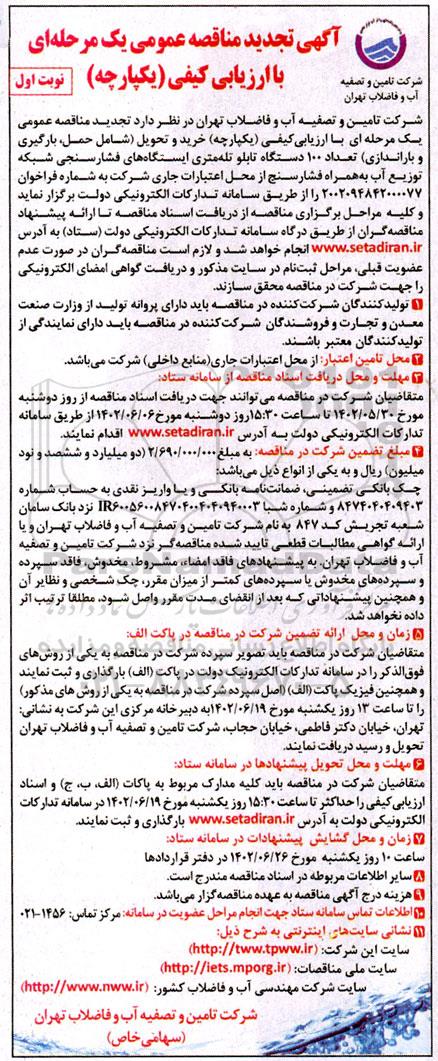 آگهی تجدید مناقصه عمومی یک مرحله‌ای
با ارزیابی کیفی (یکپارچه)
نوبت اول
شرکت تامین و تصفیه
آب و فاضلاب تهران
شرکت تامیـن و تصفیـه آب و فاضـلاب تهران در نظر دارد تجدیـد مناقصه عمومی
یـک مرحلـه ای بـا ارزیابی‌کیفی (یکپارچه) خرید و تحویل (شامل حمل، بارگیری
و باراندازی) تعداد ۱۰۰ دستگاه تابلو تله‌متری ایستگاه‌های فشارسنجی شبکه
توزیـع آب به‌همـراه فشارسنج از محل اعتبارات جاری شرکت به شماره فراخوان
۲۰۰۲۰۹۴۸۴۲۰۰۰۰۷۷ را از طریـق سامانه تـدارکات الکترونیکی دولت برگزار نماید
و کلیـه مراحـل برگزاری مناقصه از دریافت اسناد مناقصه تـا ارائـه پیشنهاد
مناقصه‌گران از طریـق درگاه سامانه تـدارکات الکترونیکی دولت (ستاد) به آدرس
www.setadiran.ir انجام خواهد شد و لازم است مناقصه‌گران در صورت عدم
عضویت قبلی، مراحل ثبت‌نام در سایت مذکور و دریافـت گواهی امضای الکترونیکی
را جهـت شـرکت در مناقصه محقق سـازند.
۱ تولیدکنندگان شرکت‌کننده در مناقصـه باید دارای پروانه تولیـد از وزارت صنعت
معـدن و تجـارت و فروشنـدگان شرکت‌کننده در مناقصـه بایـد دارای نمایندگی از
تولیدکنندگان معتبر باشنـد.
۲ محل تامین اعتبار: از محل اعتبارات جاری(منابع داخلی) شرکت می‌باشد.
۳ مهلت و محل دریافت اسناد مناقصه از سامانه ستاد:
متقاضیان شرکت در مناقصه می‌توانند جهت دریافت اسناد مناقصه از روز دوشنبه
مورخ ۱۴۰۲/۰۵/۳۰ تا ساعت ۱۵:۳۰ روز دوشـنبه مورخ ۱۴۰۲/۰۶/۰۶ از طریق سامانه
تدارکات الکترونیکی دولت بـه آدرس www.setadiran.ir اقدام نمایند.
۴ مبلغ تضمین شرکت در مناقصه: به مبلغ ۲/۶۹۰/۰۰۰/۰۰۰ (دو میلیارد و ششصد و نود
میلیون) ریال و به یکی از انواع ذیل می‌باشد:
چک بانکی تضمینی، ضمانت‌نامه بانکـی و یـا واریـز نقدی به حسـاب شـماره
۸۴۷۴۰۴۰۴۰۹۴۰۳ و شماره شبا IR۶۰۰۵۶۰۰۸۴۷۰۴۰۰۴۰۴۰۹۴۰۰۳ نزد بانک سامان
شعبه تجریش کد ۸۴۷ به نام شرکت تامین و تصفیـه آب و فاضلاب تهـران و یا
ارائـه گواهی مطالبات قطعی تایید شده مناقصه‌گـر نزد شرکت تامیـن و تصفیه
آب و فاضـلاب تهـران. به پیشنهادهای فاقد امضاء، مشروط، مخدوش، فاقد سپرده
و سپرده‌های مخدوش یا سپرده‌های کمتر از میزان مقرر، چک شخصی و نظایر آن
و همچنین پیشنهاداتی که بعد از انقضای مدت مقرر واصل شود، مطلقا ترتیب اثر
داده نخواهد شد.
۵ زمان و محل ارائه تضمین شرکت در مناقصه در پاکت الف:
متقاضیان شرکت در مناقصه باید تصویر سپرده شرکت در مناقصه به یکی از روش‌های
فوق‌الذکر را در سامانه تدارکات الکترونیک دولت در پاکت (الف) بارگذاری و ثبت نمایند
و همچنین فیزیک پاکت (الف) (اصل سپرده شرکت در مناقصه به یکی از روش های مذکور)
را تا ساعت ۱۳ روز یکشنبه مورخ ۱۴۰۲/۰۶/۱۹ به دبیرخانه مرکزی این شرکت به نشانی:
تهران، خیابان دکتر فاطمی، خیابان حجاب، شرکت تامین و تصفیه آب و فاضلاب تهران
تحویل و رسید دریافت نمایند.
۶ مهلت و محل تحویل پیشنهادها در سامانه ستاد:
متقاضیان شرکت در مناقصه باید کلیه مدارک مربوط به پاکات (الف، ب، ج) و اسناد
ارزیابی کیفی را حداکثر تا ساعت ۱۵:۳۰ روز یکشنبه مورخ ۱۴۰۲/۰۶/۱۹ در سامانه تدارکات
الکترونیکی دولت به آدرس www.setadiran.ir بارگذاری و ثبت نمایند.
۷ زمان و محل گشایش پیشنهادات در سامانه ستاد:
ساعت ۱۰ روز یکشنبه مورخ ۱۴۰۲/۰۶/۲۶ در دفتر قراردادها
۸ سایر اطلاعات مربوطه در اسناد مناقصه مندرج است.
۹ هزینه درج آگهی مناقصه به عهده مناقصه‌گزار می‌باشد.
۱۰ اطلاعات تماس سامانه ستاد جهت انجام مراحل عضویت در سامانه: مرکز تماس: ۱۴۵۶-۰۲۱
۱۱ نشانی سایت‌های اینترنتی به شرح ذیل:
سایت این شرکت: (http://tww.tpww.ir)
سایت ملی مناقصات: (http://iets.mporg.ir)
سایت شرکت مهندسی آب و فاضلاب کشور: (http://www.nww.ir)
شرکت تامین و تصفیه آب و فاضلاب تهران
(سهامی خاص)